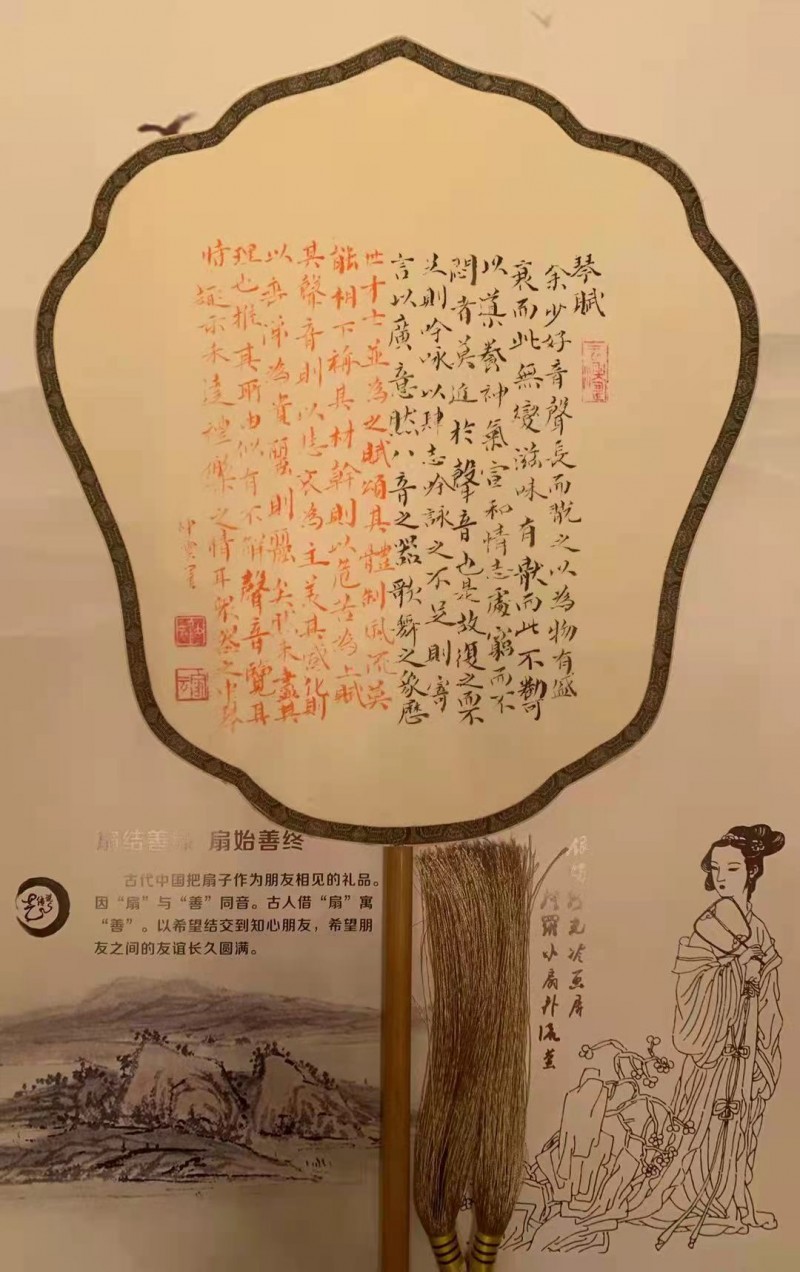 琴賦
余少好音聲長而翫之以為物有盛
衰而此無變滋味有猒而此不勌可
以導養神氣宣和情志處窮而不
悶者莫近於聲音也是故復之而不
足則吟咏以肆志吟詠之不足則寄
言以廣意然八音之器歌舞之象歷
世才士並為之賦頌其體制風流莫
能相下稱其材幹則以危苦為上賦
其聲音則以悲哀為主美其感化則
以垂涕為貴麗則麗矣然未盡其
理也推其所由似有不解聲音覽其
亦未達禮樂之情耳衆器之中琴
扇结善缘 扇始善终
古代中国把扇子作为朋友相见的礼品。
因“扇”与“善”同音。古人借“扇”寓
“善”。以希望结交到知心朋友，希望朋
友之间的友谊长久圆满。
银烛秋光冷画屏
轻罗小扇扑流萤